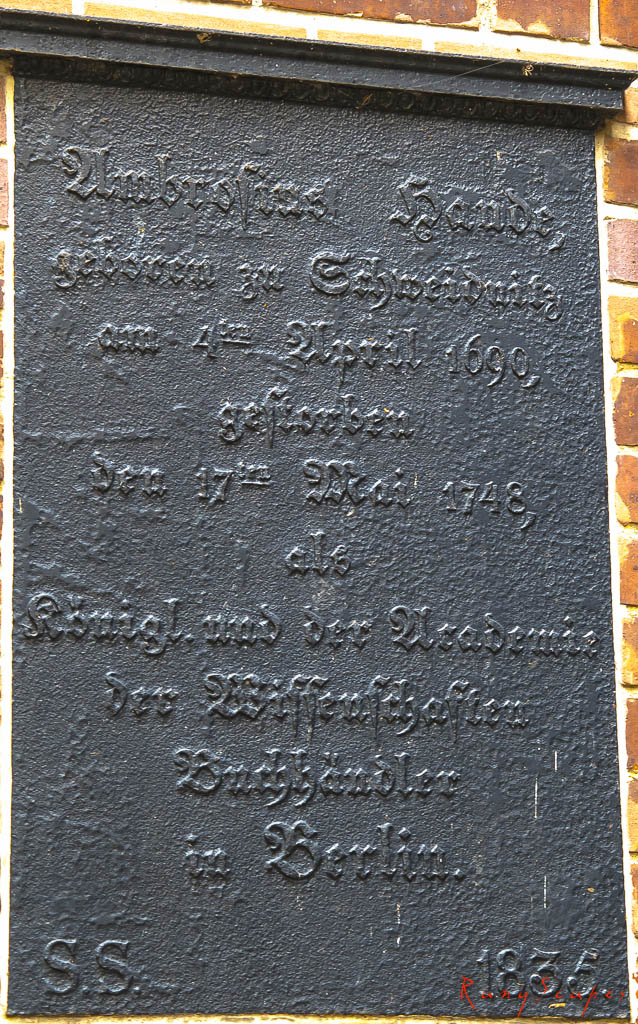 Ambrosius Haude,
geboren zu Schweidnitz
am 4ten April 1690,
gestorben
den 17ten Mai 1748,
als
Königl. und der Academie
der Wissenschaften
Buchhändler
in Berlin.
S.S. 1835.
RubyScapes